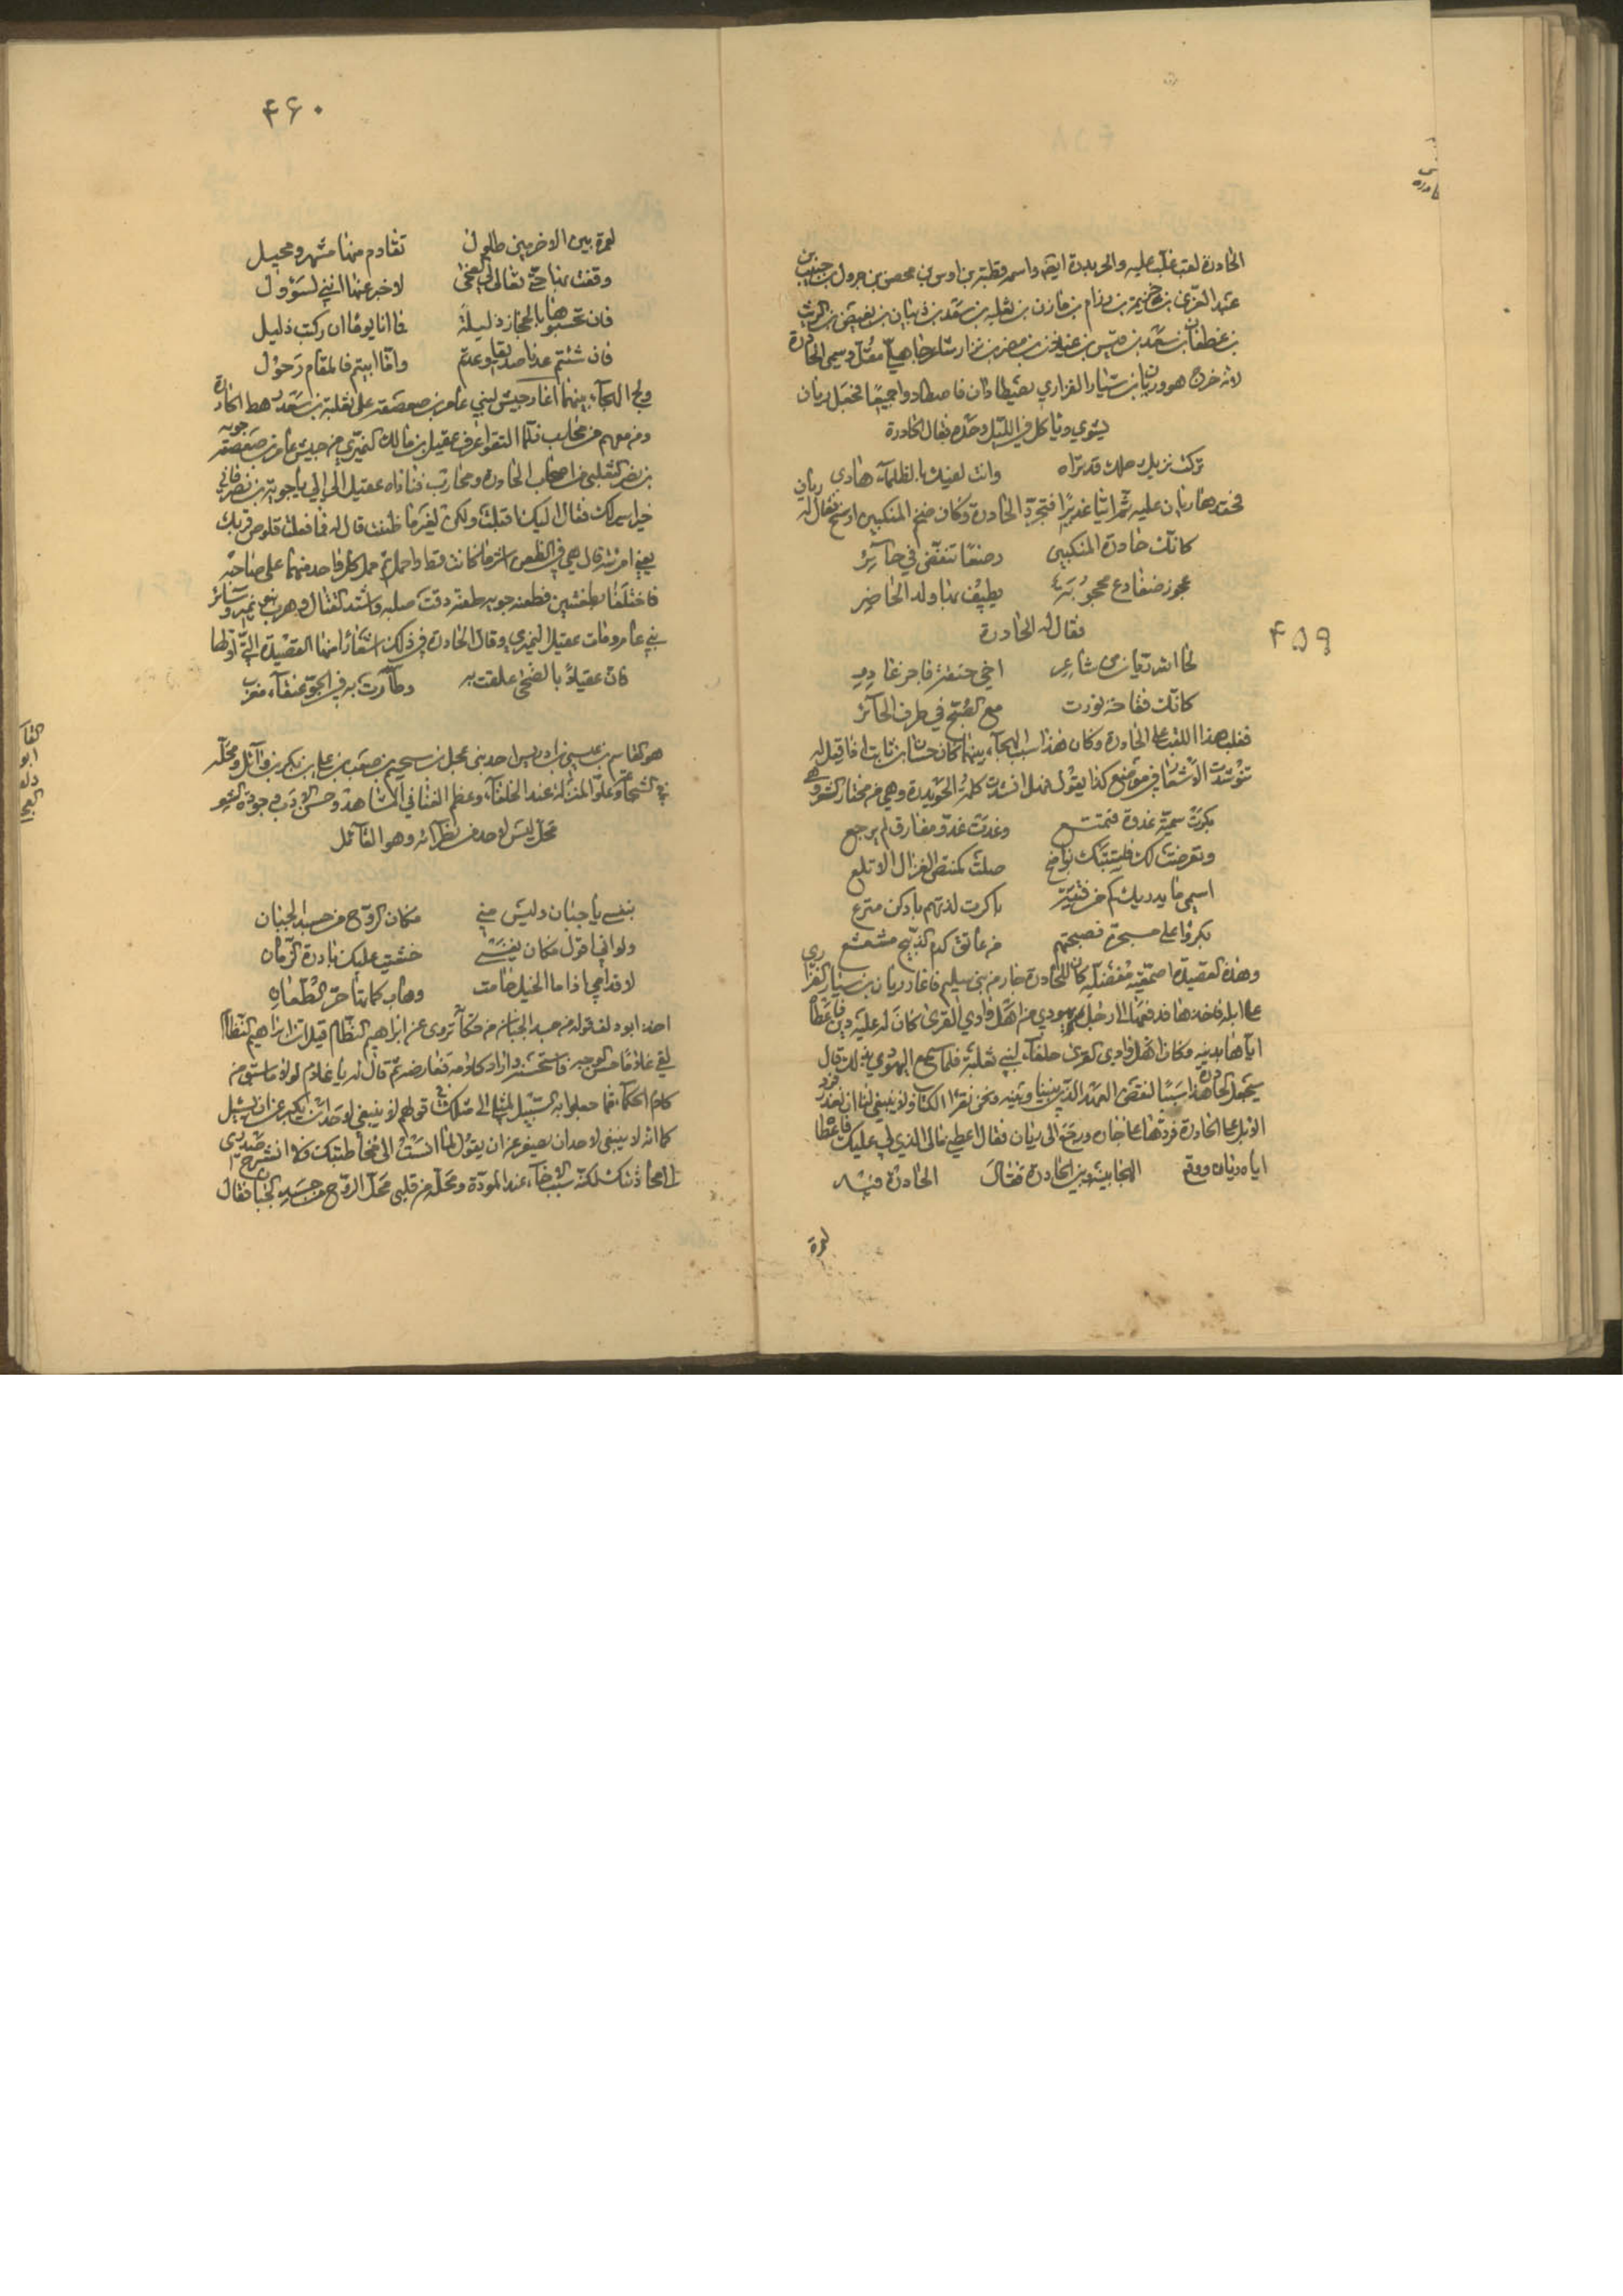 ۴۵۹
الحادرة لقب غلب عليه والحويدرة ايضا واسمه قطبة بن اوس بن محصن بن جرول بن حبيب بن
عبد العزى بن خزيمة بن رزام بن مازن بن ثعلبه بن سعد بن ذبيان بن بغيض بن الريث
بن غطفان بن سعد بن قيس بن عيلان بن مضر بن نزار شاعر جاهلي مقل وسمى الحادرة
لانه خرج هو وزبان بن سيار الفزاري يصطادان فاصطادا جميعا فجعل زبان
يشوي وياكل في الليل وحده فقال الحادرة
تركت رفيق رحلك قد تراه وانت لفيك بالظلماء هادي
فحقدها زبان عليه ثم اتيا غديرا فتجرد الحادرة وكان ضخم المنكبين ارسح فقال له زبان
كانك حادرة المنكبين رصعاء تنقض في حائر
عجوز ضفادع محجوبة يطيف بها ولد الحاضر
فقال له الحادرة
لحا الله زبان من شاعر اخي خنعة فاجر غادر
كانك فقاحة نورت مع الصبح في طرف الحائر
فغلب هذا اللقب على الحادرة وكان هذا سبب الهجاء بينهما كان حسان بن ثابت اذا قيل له
تنوشدت الاشعار في موضع كذا يقول فهل انشدت كلمة الحويدرة وهي من مختار الشعر وهي
بكرت سمية غدوة فتمتع وغدت غدو مفارق لم يرجع
وتعرضت لك فاستبتك بواضح صلت كمنتص الغزال الاتلع
اسمي ما يدريك كم من فتية باكرت لذتهم بادكن مترع
بكروا علي بسحرة فصبحتهم من عاتق كدم الذبيح مشعشع
وهذه القصيدة اصمعية مفضلية كان للحادرة جار من بني سليم فاغار زبان بن سيار الفزاري
على ابله فاخذها فدفعها الى رجل يهودي من اهل وادي القرى كان له عليه دين فاعطاه
اياها بدينه وكان اهل وادي القرى حلفاء لبني ثعلبة فلما سمع اليهودي بذلك قال
سيجعل الحادرة هذا سببا لنقض العهد الذي بيننا وبينه ونحن نقرأ الكتاب ولا ينبغي لنا ان نغدر فرد
الابل على الحادرة فردها على جاره ورجع الى زبان فقال اعطني مالي الذي لي عليك فاعطاه
اياه زبان ووقع الهجا بينه وبين الحادرة فقال الحادرة فيه
لعمرة
۴۶۰
لعمرة بين الاخرمين طلول تقادم منها مشهر ومحيل
وقفت بها حتى تعالى لي الضحى لاخبر عنها انني لسؤول
فان تحسبوها بالحجاز ذليلة فما انا يوما ان ركبت ذليل
فان شئتم عدنا صديقا وعدتم واما ابيتم فالمقام زحول
ولج الهجاء بينهما اغار جيش لبني عامر بن صعصعة على ثعلبة بن سعد رهط الحادرة
ومن معهم من محارب فلما التقوا عرف عقيل بن مالك النميري من جيش عامر بن صعصعة جوية
بن نصر الثعلبي من اصحاب الحادرة ومحارب فناداه عقيل الي الي يا جوية بن نصر فاني
خيل اسر لك فقال اليك اقبلت ولكن لغير ما ظننت قال له فما فعلت قلوص قربك
يعني امرأته قال هي في الظعن اسر ما كانت قط واجمل ثم حمل كل واحد منهما على صاحبه
فاختلفا بطعنتين فطعنه جويه طعنة دقت صلبه واشتد القتال وهرب بني نمير وسائر
بني عامر ومات عقيل النميري وقال الحادرة في ذلك اشعارا منها القصيدة التي اولها
كان عقيلا بالضحى علقت به وطارت به في الجو عنقاء مغرب
هو القاسم بن عيسى بن ادريس احد بني عجل بن لجيم بن صعب بن علي بن بكر بن وائل ومحله
في الشجاعة وعلو المنزلة عند الخلفاء، وعظم الغنا في المشاهد وحسن الادب وجودة الشعر
محل ليس لاحد من نظرائه وهو القائل
بنفسي يا جنان وليس مني مكان الروح من جسد الجبان
ولو اني اقول مكان نفسي خشيت عليك بادرة الزمان
لاقدامي اذا ما الخيل خامت وهاب كماتها حر الطعان
اخذ ابو دلف قوله من جسد الجبان من حكاية تروى عن ابراهيم النظام قيل ان ابراهيم النظام
لقي غلاما حسن الوجه فاستحسنه واراد كلامه فعارضه ثم قال له يا غلام لولا ما سبق من
كلام الحكماء مما جعلوا به السبيل لمثلي الى مثلك في قولهم لا ينبغي لاحد ان يكبر عن ان يسئل
كما انه لا ينبغي لاحد ان يصغر عن ان يقول لما انست الى مخاطبتك ولا انشرح صدري
الى محادثتك لكنه سبب الاخاء، عند المودة ومحلك من قلبي محل الروح من جسد الجبان فقال